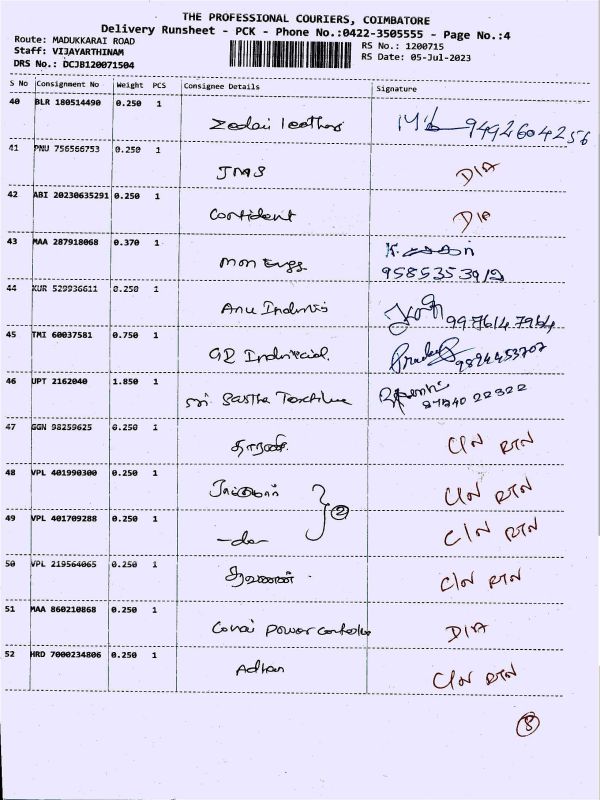 THE PROFESSIONAL COURIERS, COIMBATORE
Delivery Runsheet - PCK - Phone No.:0422-3505555 - Page No.:4
Route: MADUKKARAI ROAD
Staff: VIJAYARTHINAM
DRS No.: DCJB120071504
RS No.: 1200715
RS Date: 05-Jul-2023
S No Consignment No Weight PCS Consignee Details Signature
40 BLR 180514490 0.250 1
leathers 9492604256
41 PNU 756566753 0.250 1
JMS D/A
42 ABI 20230635291 0.250 1
Confident D/A
43 MAA 287918068 0.370 1
Mon Engg
9585353912
44 KUR 529936611 0.250 1
Anu 9976147964
45 TMI 60037581 0.750 1
GR 9894453707
46 UPT 2162040 1.850 1
Sri Sastha 87540 22322
47 GGN 98259625 0.250 1
C/N RTN
48 VPL 401990300 0.250 1
C/N RTN
2
49 VPL 401709288 0.250 1
-do- C/N RTN
50 VPL 219564065 0.250 1
சரவணன் C/N RTN
51 MAA 860210868 0.250 1
Covai Power Controls D/A
52 HRD 7000234806 0.250 1
Adhan C/N RTN
8